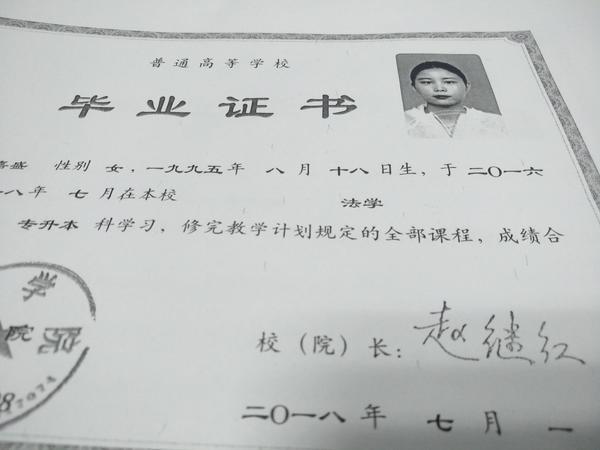 普通高等学校
毕业证书
盛 性别 女，一九九五年 八 月 十八 日生，于 二〇一六
一八年 七 月在本校 法学
专升本 科学习，修完教学计划规定的全部课程，成绩合
学
院
校（院）长：赵继红
二〇一八年 七月 一